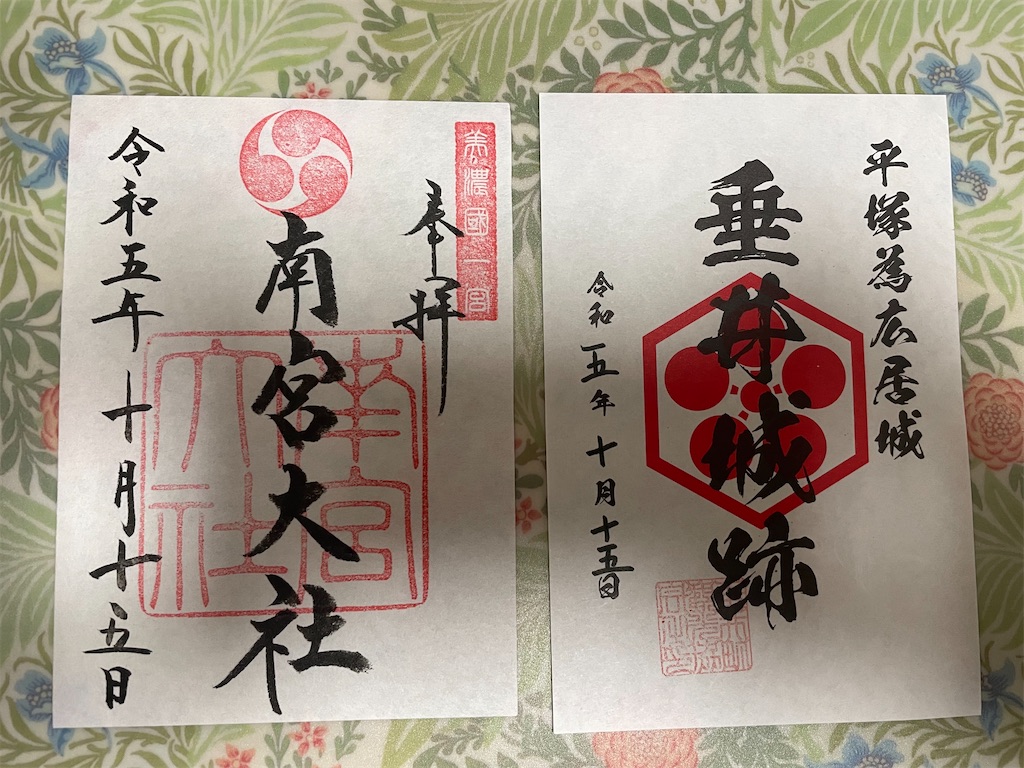 美濃國一宮
奉拝
南宮大社
南宮
大社
令和五年十月十五日
平塚為広居城
垂井城跡
令和五年十月十五日